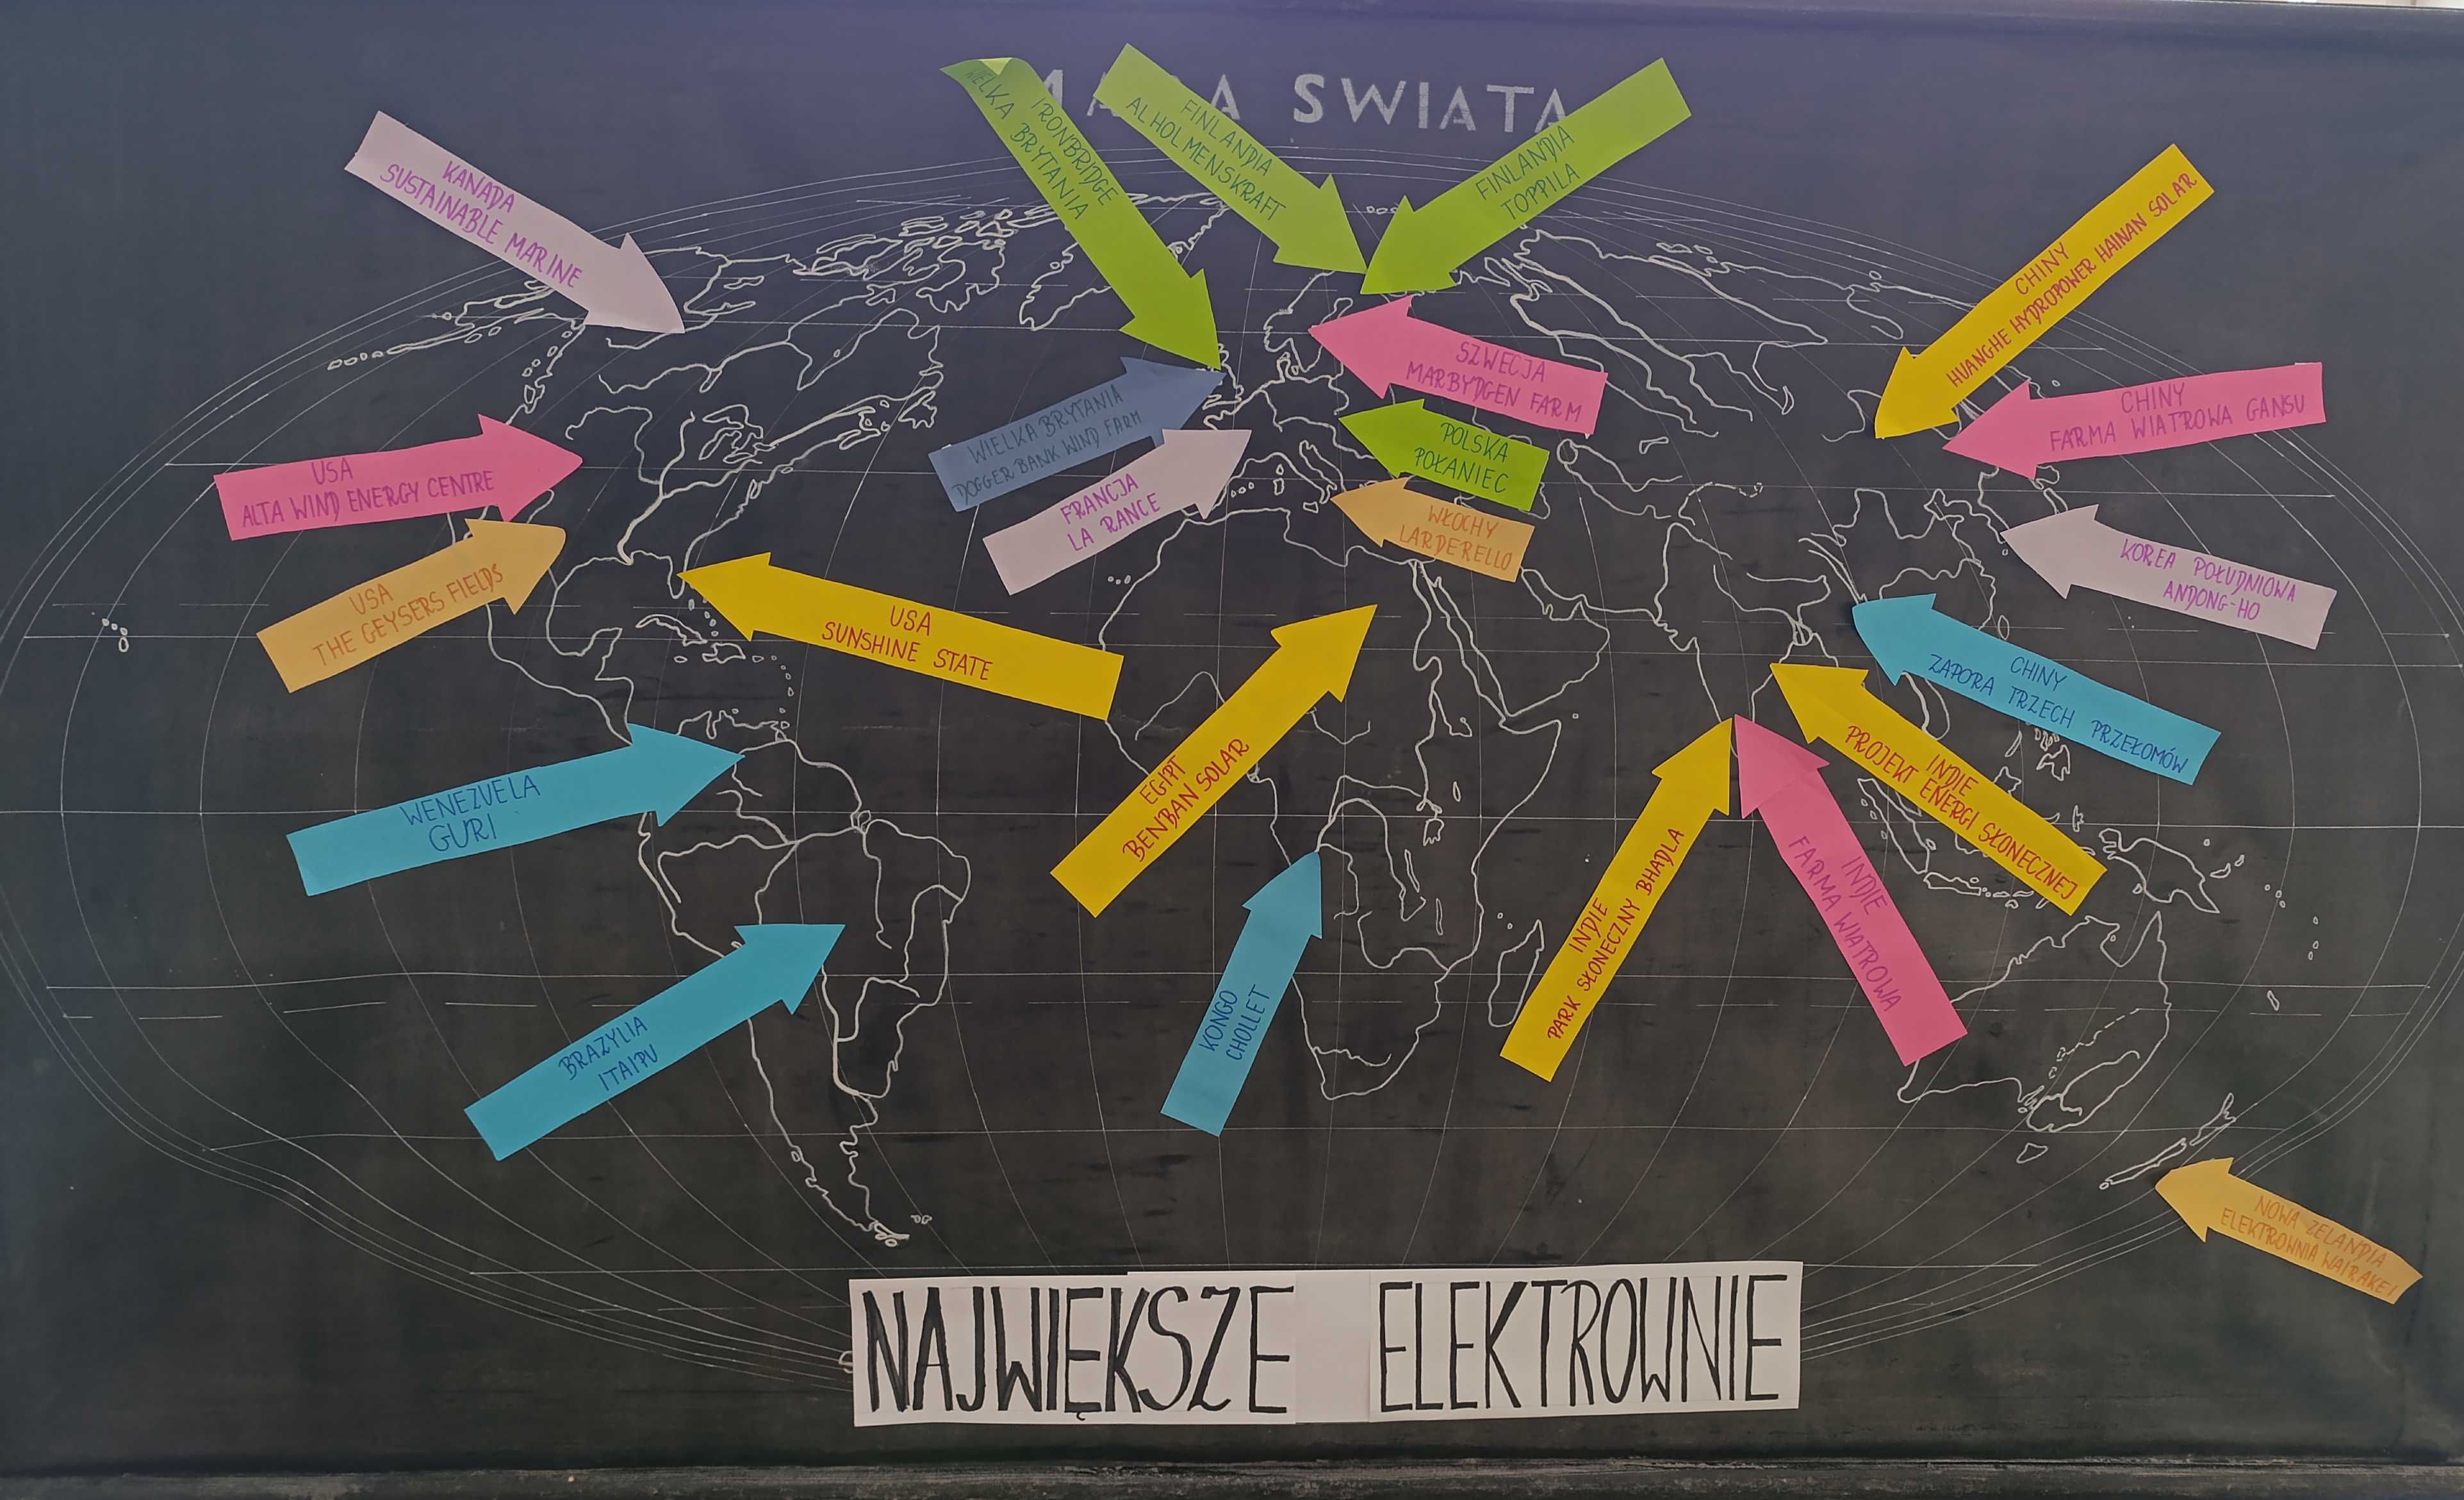 MAPA SWIATA
KANADA
SUSTAINABLE MARINE
IRONBRIDGE
WIELKA BRYTANIA
FINLANDIA
ALHOLMENSKRAFT
FINLANDIA
TOPPILA
CHINY
HUANGHE HYDROPOWER HAINAN SOLAR
SZWECJA
MARBYDGEN FARM
CHINY
FARMA WIATROWA GANSU
USA
ALTA WIND ENERGY CENTRE
WIELKA BRYTANIA
DOGGER BANK WIND FARM
POLSKA
POŁANIEC
FRANCJA
LA RANCE
WŁOCHY
LARDERELLO
USA
THE GEYSERS FIELDS
KOREA POŁUDNIOWA
ANDONG-HO
USA
SUNSHINE STATE
CHINY
ZAPORA TRZECH PRZEŁOMÓW
WENEZUELA
GURI
EGIPT
BENBAN SOLAR
INDIE
PROJEKT ENERGI SŁONECZNEJ
INDIE
PARK SŁONECZNY BHADLA
INDIE
FARMA WIATROWA
BRAZYLIA
ITAIPU
KONGO
CHOLLET
NOWA ZELANDIA
ELEKTROWNIA WAIRAKEI
NAJWIĘKSZE ELEKTROWNIE